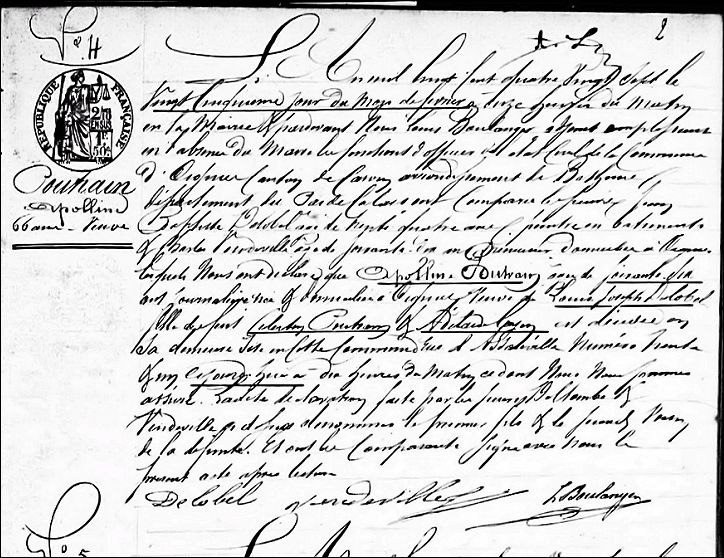 2
N° 4
L'An mil huit cent quatre vingt sept le
RÉPUBLIQUE FRANÇAISE
vingt cinquième jour du mois de février à onze heures du matin
en la Mairie & pardevant Nous Louis Boulanger adjoint remplissant
en l'absence du Maire les fonctions d'officier de l'état Civil de la Commune
Pouhain
d'Oignies Canton de Carvin arrondissement de Béthune
Apolline
département du Pas de Calais ont Comparu les sieurs Jean
66 ans - Veuve
Baptiste Delobel âgé de trente quatre ans peintre en bâtiments
& Charles Verdeville âgé de soixante dix ans domicilié à Oignies
lesquels Nous ont déclaré que Apolline Pouhain âgée de soixante six
ans journalière née & domiciliée à Oignies Veuve de Louis Joseph Delobel
fille de feu Célestin Pouhain & est décédée en
sa demeure sise en Cette Commune Rue d' Numéro trente
& un cejourd'hui à dix heures du Matin ce dont Nous Nous sommes
assuré. La dite déclaration faite par les sieurs Delobel &
Verdeville le premier fils & le second Voisin
de la défunte. Et ont les Comparants signé avec Nous le
présent acte après lecture
Delobel Verdeville L Boulanger
N° 5